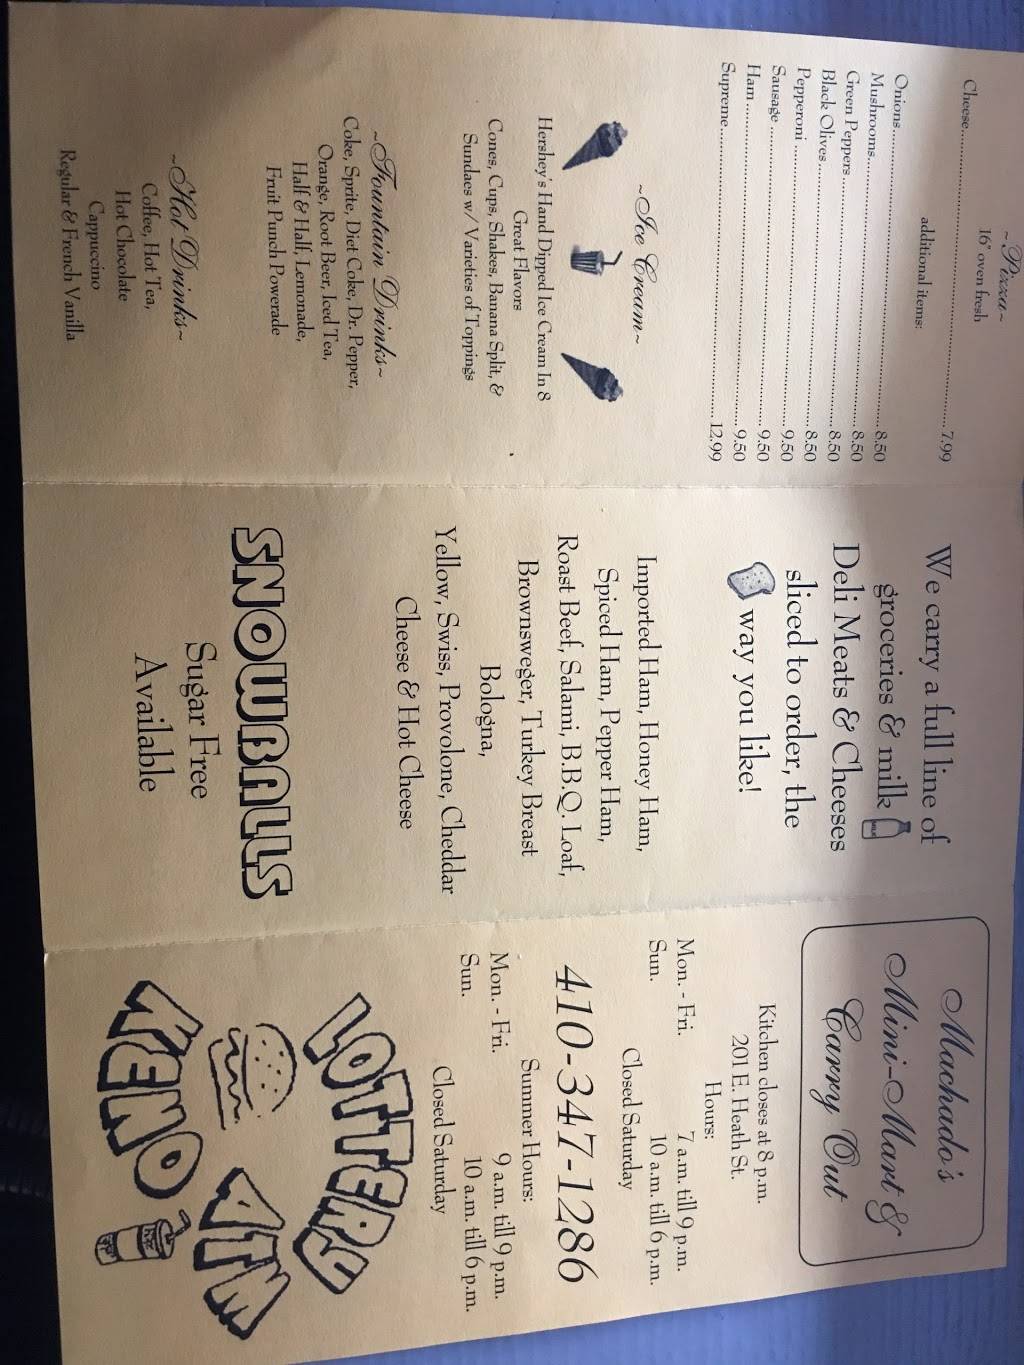 ~Pizza~
16" oven fresh
Cheese 7.99
additional items:
Onions 8.50
Mushrooms 8.50
Green Peppers 8.50
Black Olives 8.50
Pepperoni 8.50
Sausage 9.50
Ham 9.50
Supreme 12.99
~Ice Cream~
Hershey's Hand Dipped Ice Cream In 8
Great Flavors
Cones, Cups, Shakes, Banana Split, &
Sundaes w/ Varieties of Toppings
~Fountain Drinks~
Coke, Sprite, Diet Coke, Dr. Pepper,
Orange, Root Beer, Iced Tea,
Half & Half, Lemonade,
Fruit Punch Powerade
~Hot Drinks~
Coffee, Hot Tea,
Hot Chocolate
Cappuccino
Regular & French Vanilla
We carry a full line of
groceries & milk
Deli Meats & Cheeses
sliced to order, the
way you like!
Imported Ham, Honey Ham,
Spiced Ham, Pepper Ham,
Roast Beef, Salami, B.B.Q. Loaf,
Brownsweger, Turkey Breast
Bologna,
Yellow, Swiss, Provolone, Cheddar
Cheese & Hot Cheese
SNOWBALLS
Sugar Free
Available
Machado's
Mini-Mart &
Carry Out
Kitchen closes at 8 p.m.
201 E. Heath St.
Hours:
Mon. - Fri. 7 a.m. till 9 p.m.
Sun. 10 a.m. till 6 p.m.
Closed Saturday
410-347-1286
Summer Hours:
Mon. - Fri. 9 a.m. till 9 p.m.
Sun. 10 a.m. till 6 p.m.
Closed Saturday
LOTTERY
ATM
KENO